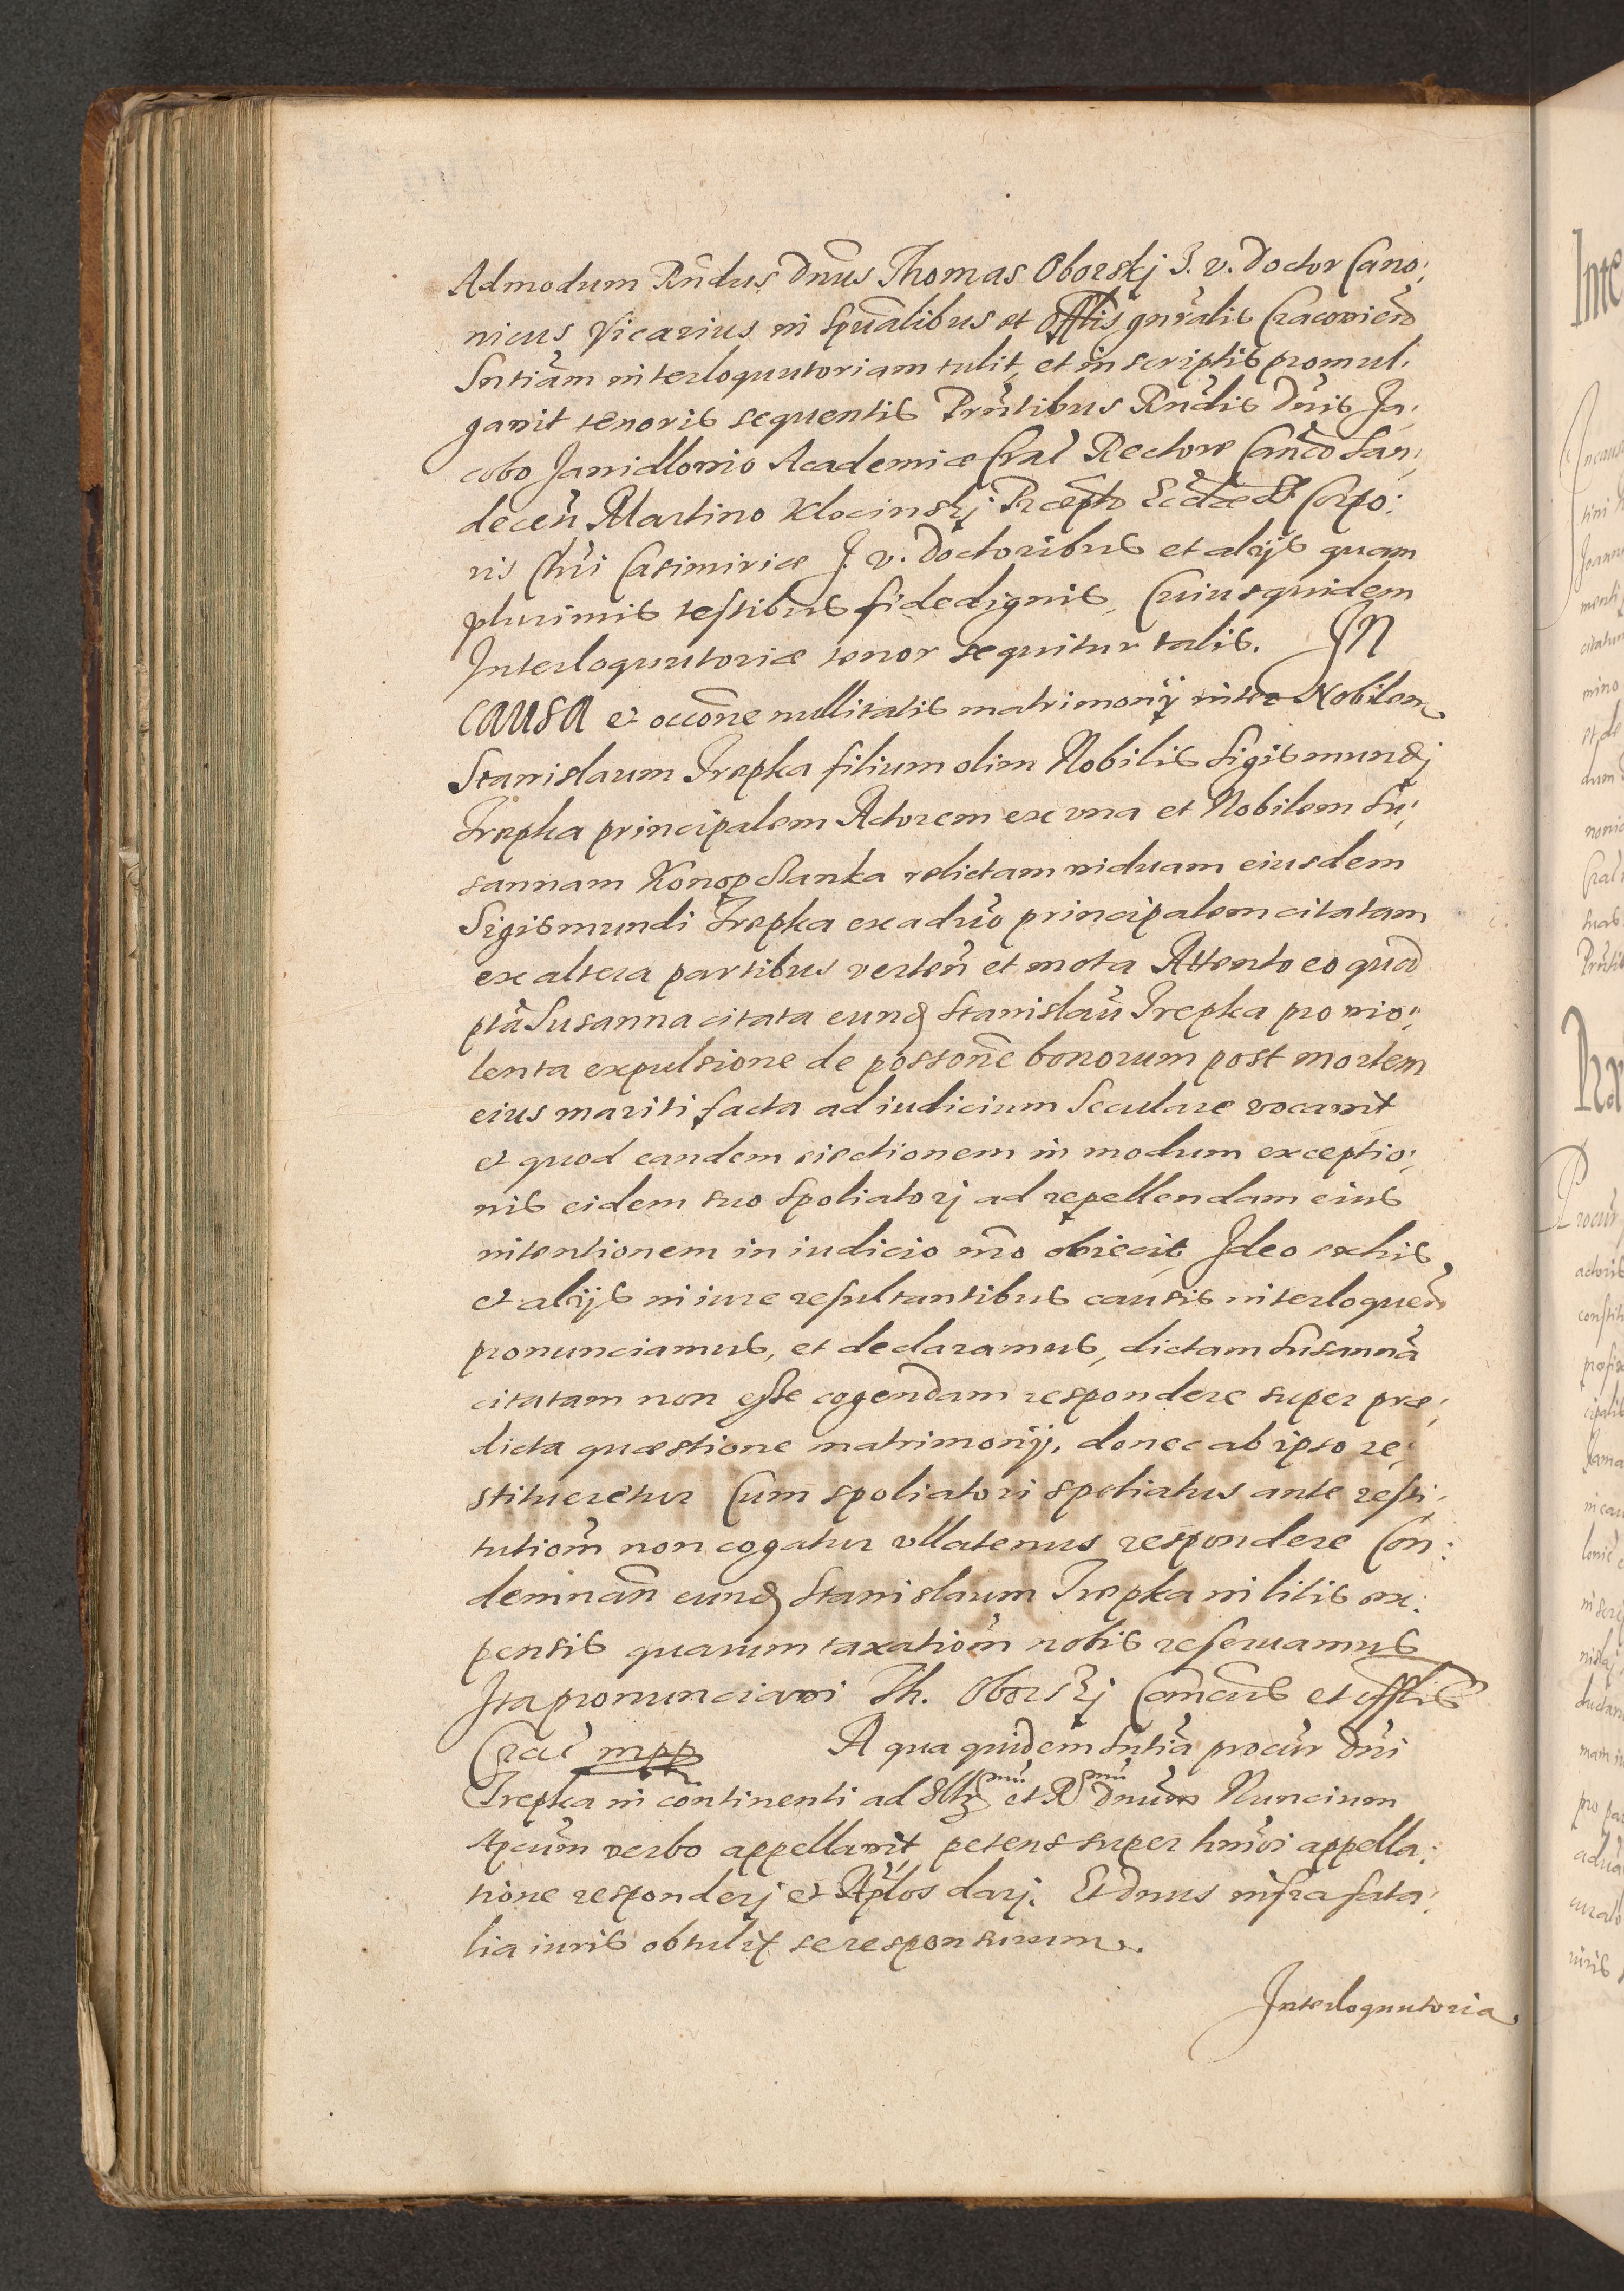 Admodum Rndus Dnus Thomas Oborskj J. v. Doctor Cano:
nicus Vicarius in Spualibus et Offlis gnralis Cracovien
Sntiam interloquutoriam tulit, et in scriptis promul:
gavit tenoris sequentis Prntibus Rndis Dnis Ja:
cobo Janidlovio Academiæ Crac Rectore Canco San:
decen Martino Klocinskj Præpto Ecclæ S. Corpo:
ris Chri Casimiriæ J. v. Doctoribus et alijs quam
plurimis testibus fidedignis, Cuiusquidem
Interloquutoriæ tenor sequitur talis. IN
CAUSA et occone nullitatis matrimonij inter Nobilem
Stanislaum Trepka filium olim Nobilis Sigismundj
Trepka principalem Actorem ex una et Nobilem Su:
sannam Konopczanka relictam viduam eiusdem
Sigismundi Trepka ex aduo principalem citatam
ex altera partibus verten et mota Attento eo quod
pta Susanna citata eund Stanislau Trepka pro vio:
lenta expulsione de possone bonorum post mortem
eius mariti facta ad iudicium Seculare vocavit
et quod eandem eiectionem in modum exceptio:
nis eidem suo Spoliatorj ad repellendam eius
intentionem in iudicio nro obiecit, Ideo ex his
et alijs in iure resultantibus causis interloquen
pronunciamus, et declaramus, dictam Susanna
citatam non esse cogendam respondere super præ:
dicta quæstione matrimonij, donec ab ipso re:
stitueretur Cum spoliatori spoliatus ante resti:
tutiom non cogatur ullatenus respondere Con:
demnan eund Stanislaum Trepka in litis ex:
pensis quarum taxatiom nobis reservamus
Ita pronunciavi Th. Oborskj Cancus et Offlis
Crac mpp A qua quidem Sntia procur Dni
Trepka in continenti ad Illmu et Rmu Dnum Nuncium
Apcum verbo appellavit, petens super hmoi appella:
tione responderj et Aplos darj. Et Dnus infra fata:
lia iuris obtulit se responsurum.
Interloquutoria